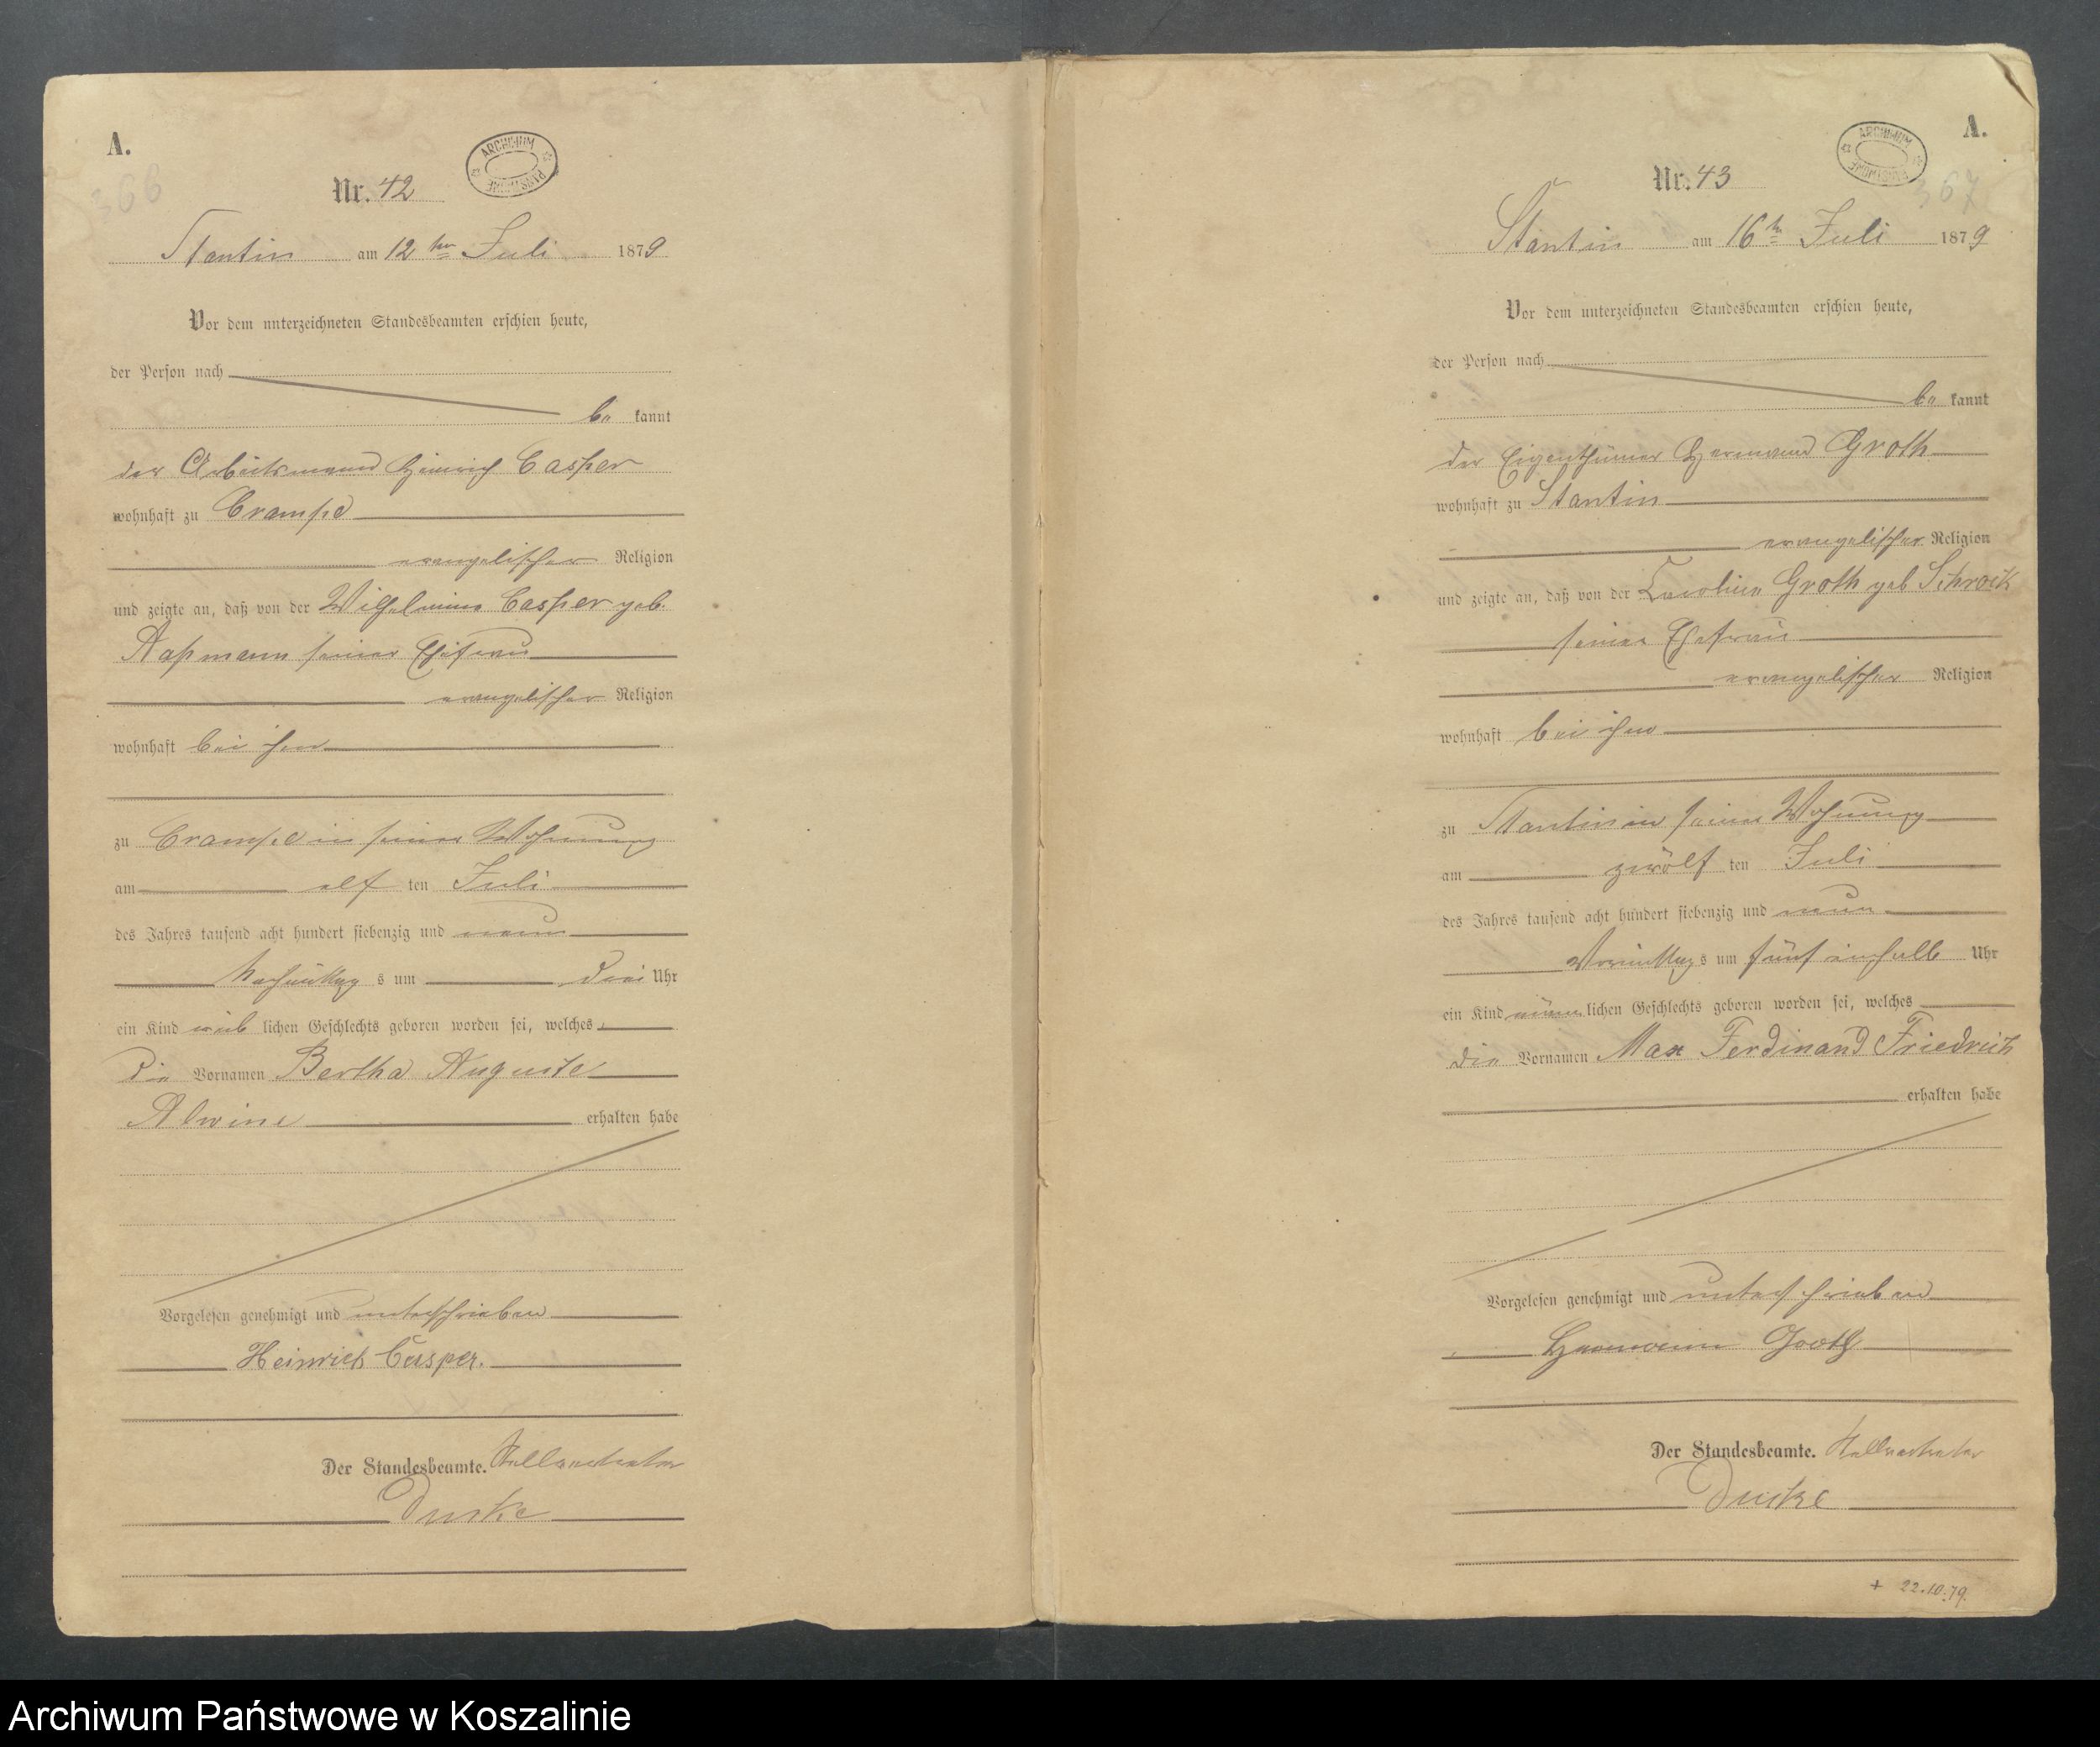 A.
366
ARCHIWUM PAŃSTWOWE
Nr. 42
Stantin am 12 ten Juli 1879
Vor dem unterzeichneten Standesbeamten erschien heute,
der Person nach
be kannt
der Arbeitsmann Heinrich Casper
wohnhaft zu Crampe
evangelischer Religion
und zeigte an, daß von der Wilhelmine Casper geb.
Aßmann seiner Ehefrau
evangelischer Religion
wohnhaft bei ihm
zu Crampe in seiner Wohnung
am elf ten Juli
des Jahres tausend acht hundert siebenzig und neun
Nachmittag s um drei Uhr
ein Kind weib lichen Geschlechts geboren worden sei, welches
die Vornamen Bertha Auguste
Alwine erhalten habe
Vorgelesen genehmigt und unterschrieben
Heinrich Casper.
Der Standesbeamte. Stellvertreter
A.
367
ARCHIWUM PAŃSTWOWE
Nr. 43
Stantin am 16 ten Juli 1879
Vor dem unterzeichneten Standesbeamten erschien heute,
der Person nach
be kannt
der Eigenthümer Hermann Groth
wohnhaft zu Stantin
evangelischer Religion
und zeigte an, daß von der Caroline Groth geb Schrock
seiner Ehefrau
evangelischer Religion
wohnhaft bei ihm
zu Stantin in seiner Wohnung
am zwölf ten Juli
des Jahres tausend acht hundert siebenzig und neun
Vormittag s um fünf einhalb Uhr
ein Kind männ lichen Geschlechts geboren worden sei, welches
die Vornamen Max Ferdinand Friedrich
erhalten habe
Vorgelesen genehmigt und unterschrieben
Hermann Groth
Der Standesbeamte. Stellvertreter
+ 22.10.79.
Archiwum Państwowe w Koszalinie